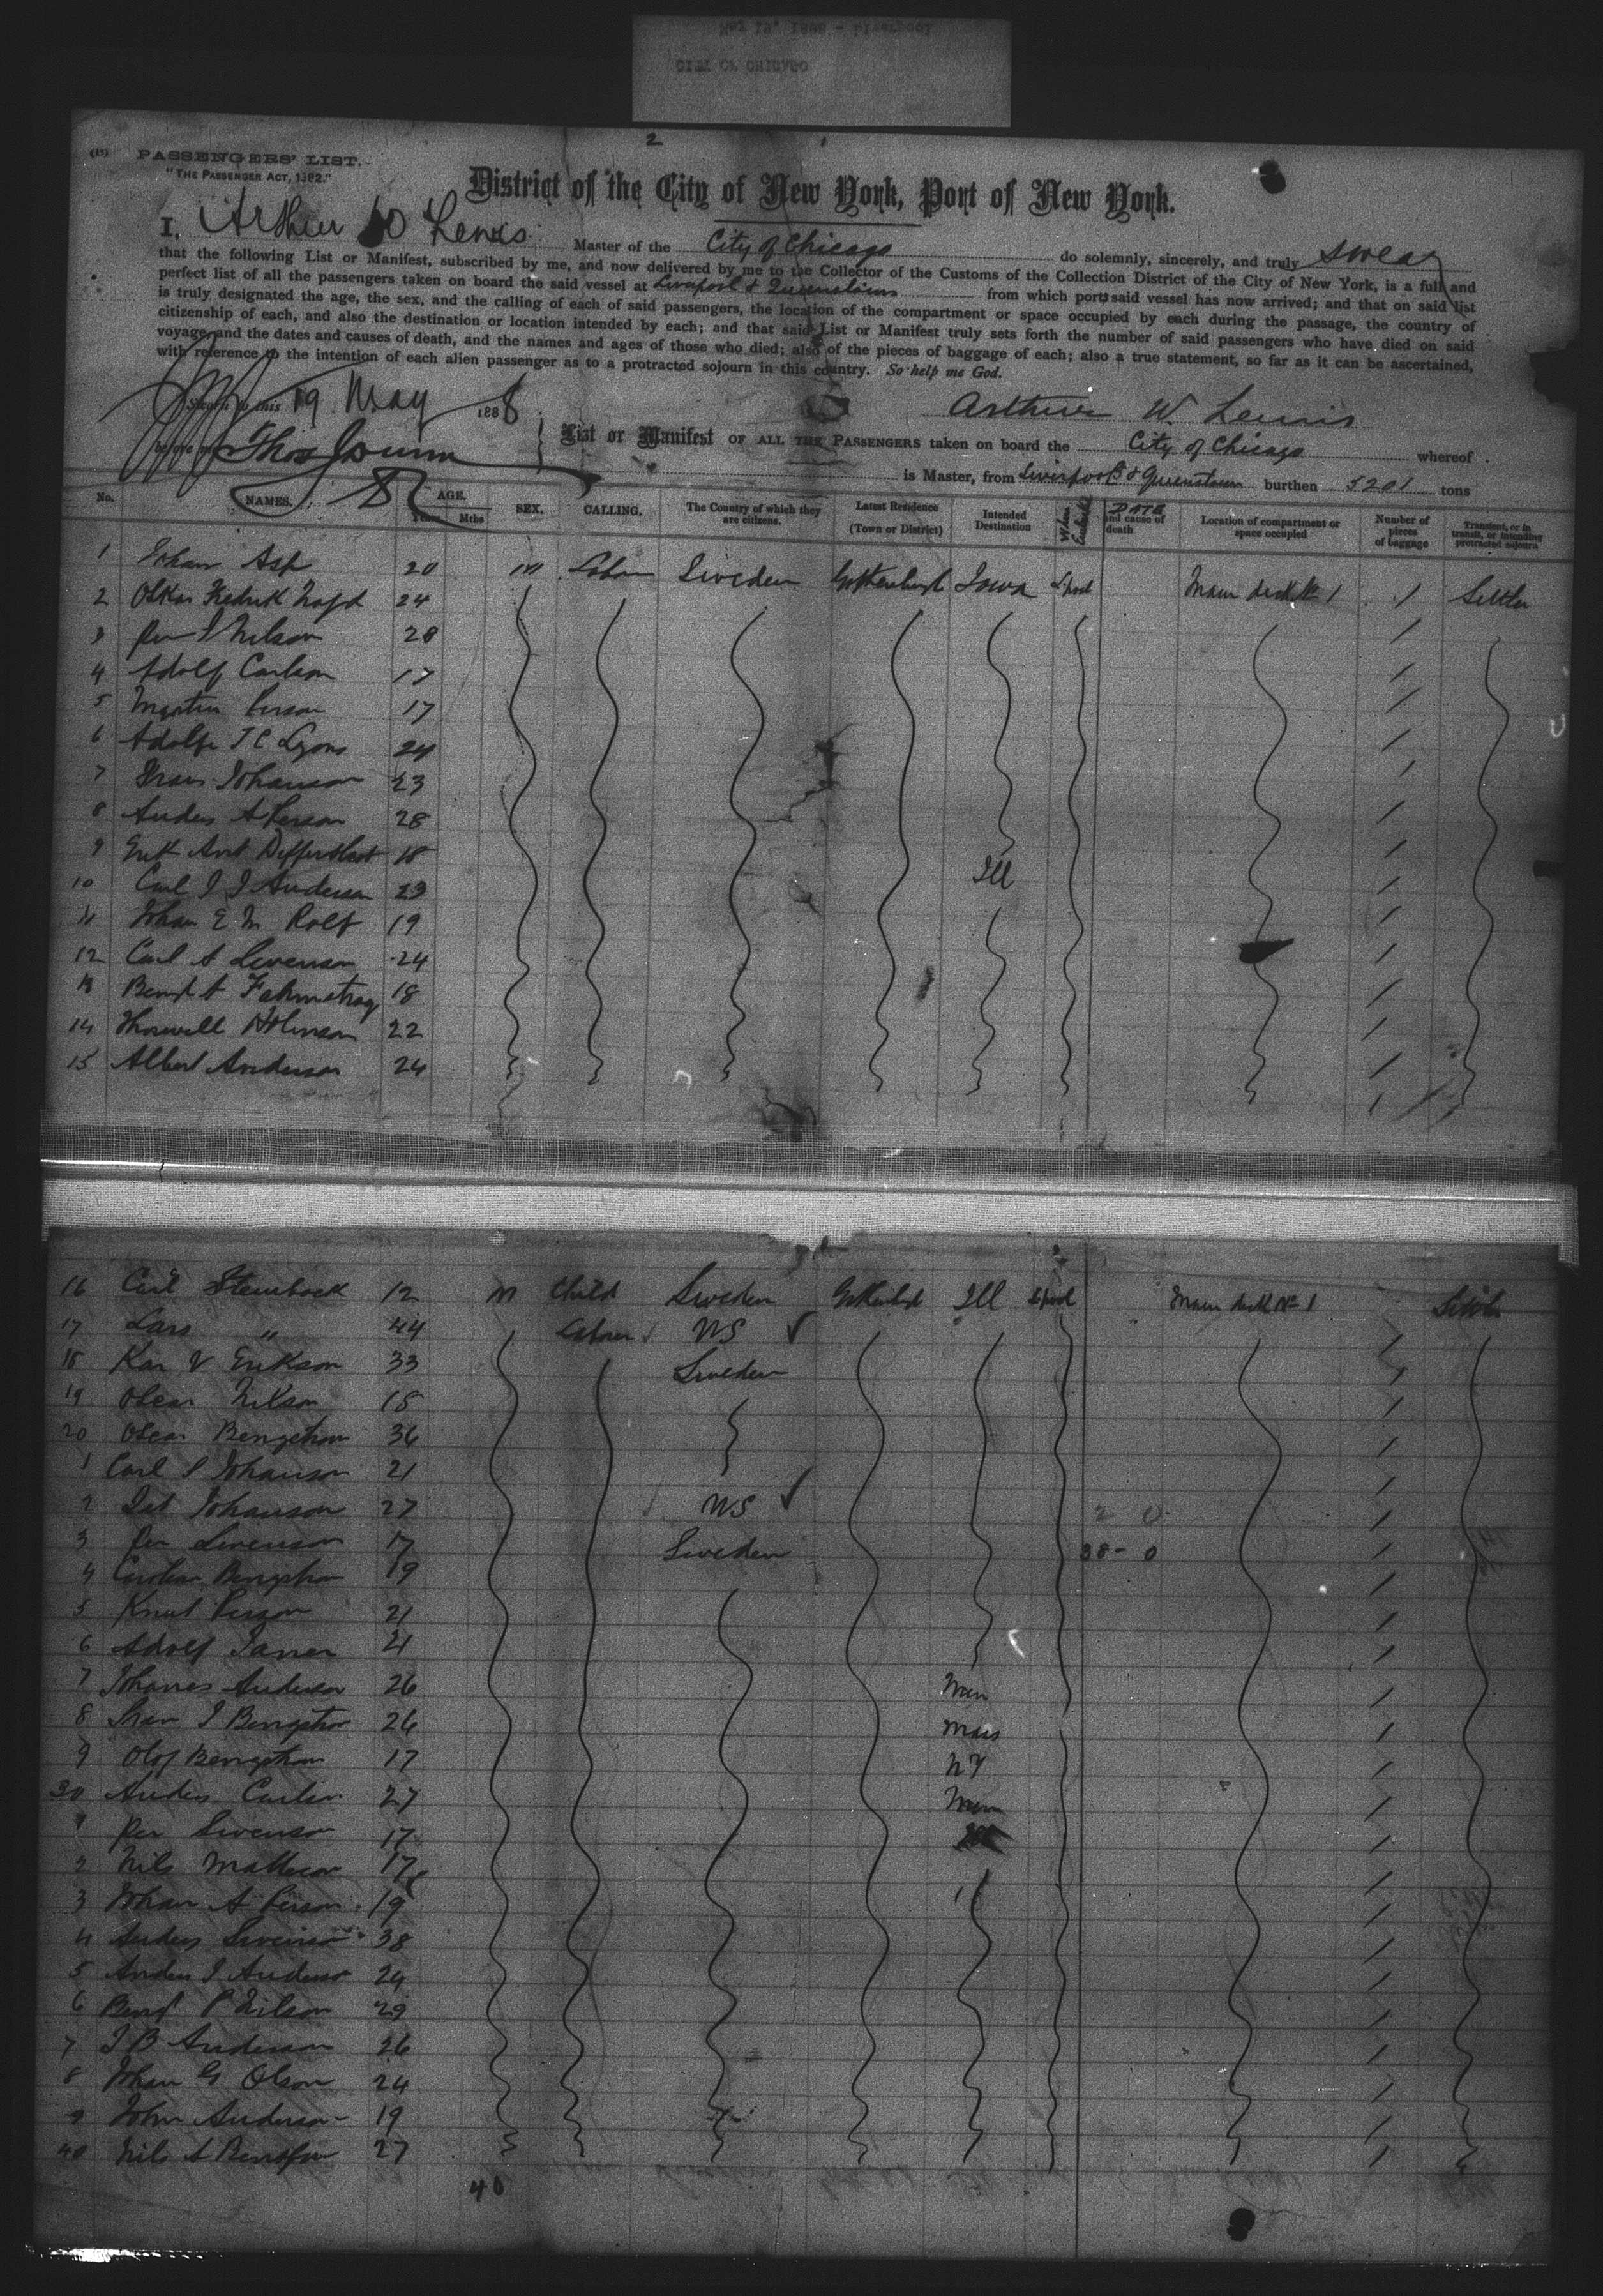 CITY OF CHICAGO
2 1
(15) PASSENGERS' LIST.
"THE PASSENGER ACT, 1882."
District of the City of New York, Port of New York.
I, Arthur W Lewis Master of the City of Chicago do solemnly, sincerely, and truly swear
that the following List or Manifest, subscribed by me, and now delivered by me to the Collector of the Customs of the Collection District of the City of New York, is a full and
perfect list of all the passengers taken on board the said vessel at Liverpool & Queenstown from which ports said vessel has now arrived; and that on said list
is truly designated the age, the sex, and the calling of each of said passengers, the location of the compartment or space occupied by each during the passage, the country of
citizenship of each, and also the destination or location intended by each; and that said List or Manifest truly sets forth the number of said passengers who have died on said
voyage, and the dates and causes of death, and the names and ages of those who died; also of the pieces of baggage of each; also a true statement, so far as it can be ascertained,
with reference to the intention of each alien passenger as to a protracted sojourn in this country. So help me God.
Sworn to this 19 May 1888 Arthur W. Lewis
before me Thos Dunn
List or Manifest OF ALL THE PASSENGERS taken on board the City of Chicago whereof
is Master, from Liverpool & Queenstown burthen 5201 tons
No. NAMES. AGE. Years Mths SEX. CALLING. The Country of which they are citizens. Latest Residence (Town or District) Intended Destination Where Embarked DATE and cause of death Location of compartment or space occupied Number of pieces of baggage Transient, or in transit, or intending protracted sojourn
1 Johan Asp 20 m Labor Sweden Gothenburg Iowa L'pool Main deck No 1 1 Settler
2 Oskar Fredrik 24
3 Per J Nelson 28
4 Adolf Carlson 17
5 Person 17
6 Adolf J C Lyons 24
7 Frans Johanson 23
8 Anders A Person 28
9 18
10 Carl J J Anderson 23 Ill
11 Johan E M Rolf 19
12 Carl A Swenson 24
13 18
14 22
15 Albert Anderson 24
16 Carl Steinbock 12 m Child Sweden Gothenburg Ill L'pool Main deck No 1 Settler
17 Lars " 44 Laborer US
18 Kar V Erikson 33 Sweden
19 Oscar Nilson 18
20 Oscar Bengston 36
1 Carl S Johanson 21
2 Johanson 27 US 2 0
3 Per Swenson 17 Sweden 38-0
4 Bengston 19
5 Knut Person 21
6 Adolf 21
7 Johanes Anderson 26 Minn
8 J Bengston 26 Mass
9 Olof Bengston 17 NY
30 Anders Carlson 27 Minn
1 Per Swenson 17
2 Nils Matteson 17
3 Johan A Person 19
4 Anders 38
5 Anders J Anderson 24
6 Bengt P Nilson 29
7 J B Anderson 26
8 Johan G Olson 24
9 John Anderson 19
40 Nils A Bengtson 27
40